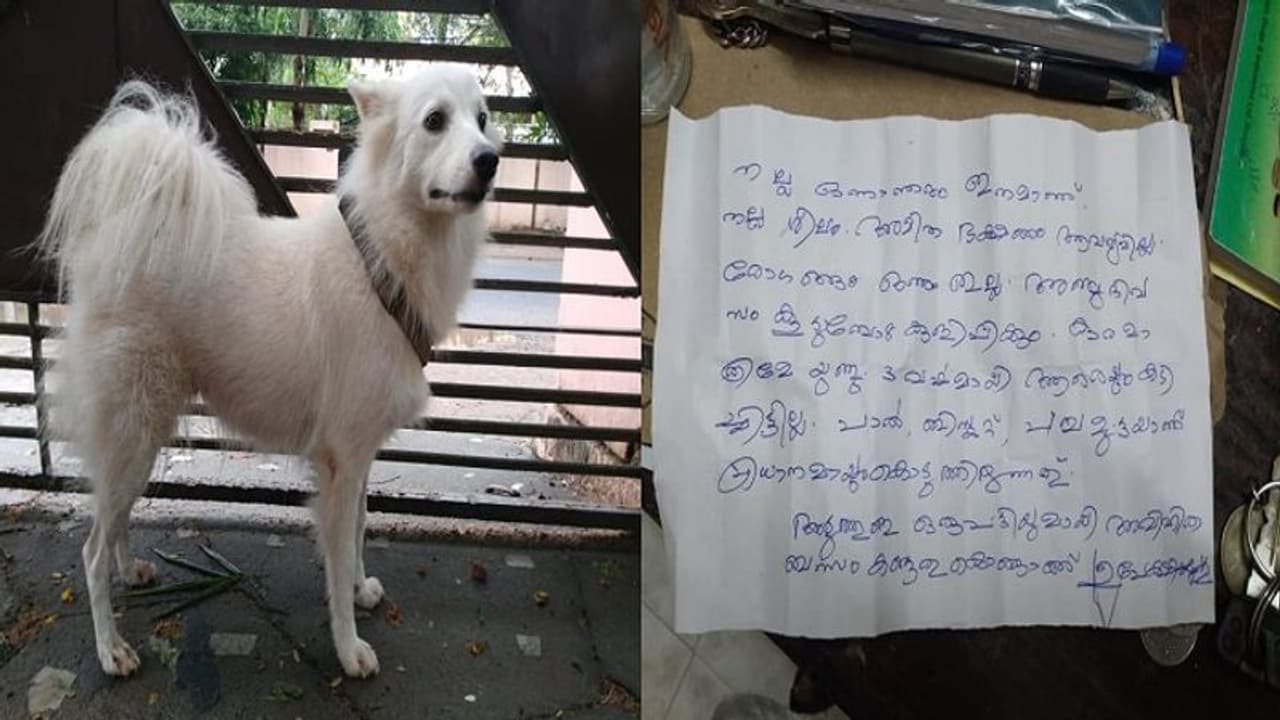 നല്ല ഒന്നാന്തരം ഇനമാണ്.
നല്ല ശീലം. അമിത ഭക്ഷണം ആവശ്യമില്ല.
രോഗങ്ങൾ ഒന്നും ഇല്ല. അഞ്ചു ദിവ
സം കൂടുമ്പോൾ കുളിപ്പിക്കും. കുര മാ
ത്രമേ യുള്ളു. 3 വർഷമായി ആരെയും കടി
ച്ചിട്ടില്ല. പാൽ, ബിസ്കറ്റ്, പച്ച മുട്ടയാണ്
പ്രധാനമായും കൊടുത്തിരുന്നത്.
അടുത്തുള്ള ഒരു പട്ടിയുമായി അവിഹിത
ബന്ധം കണ്ടതു കൊണ്ടാണ് ഉപേക്ഷിച്ചത്